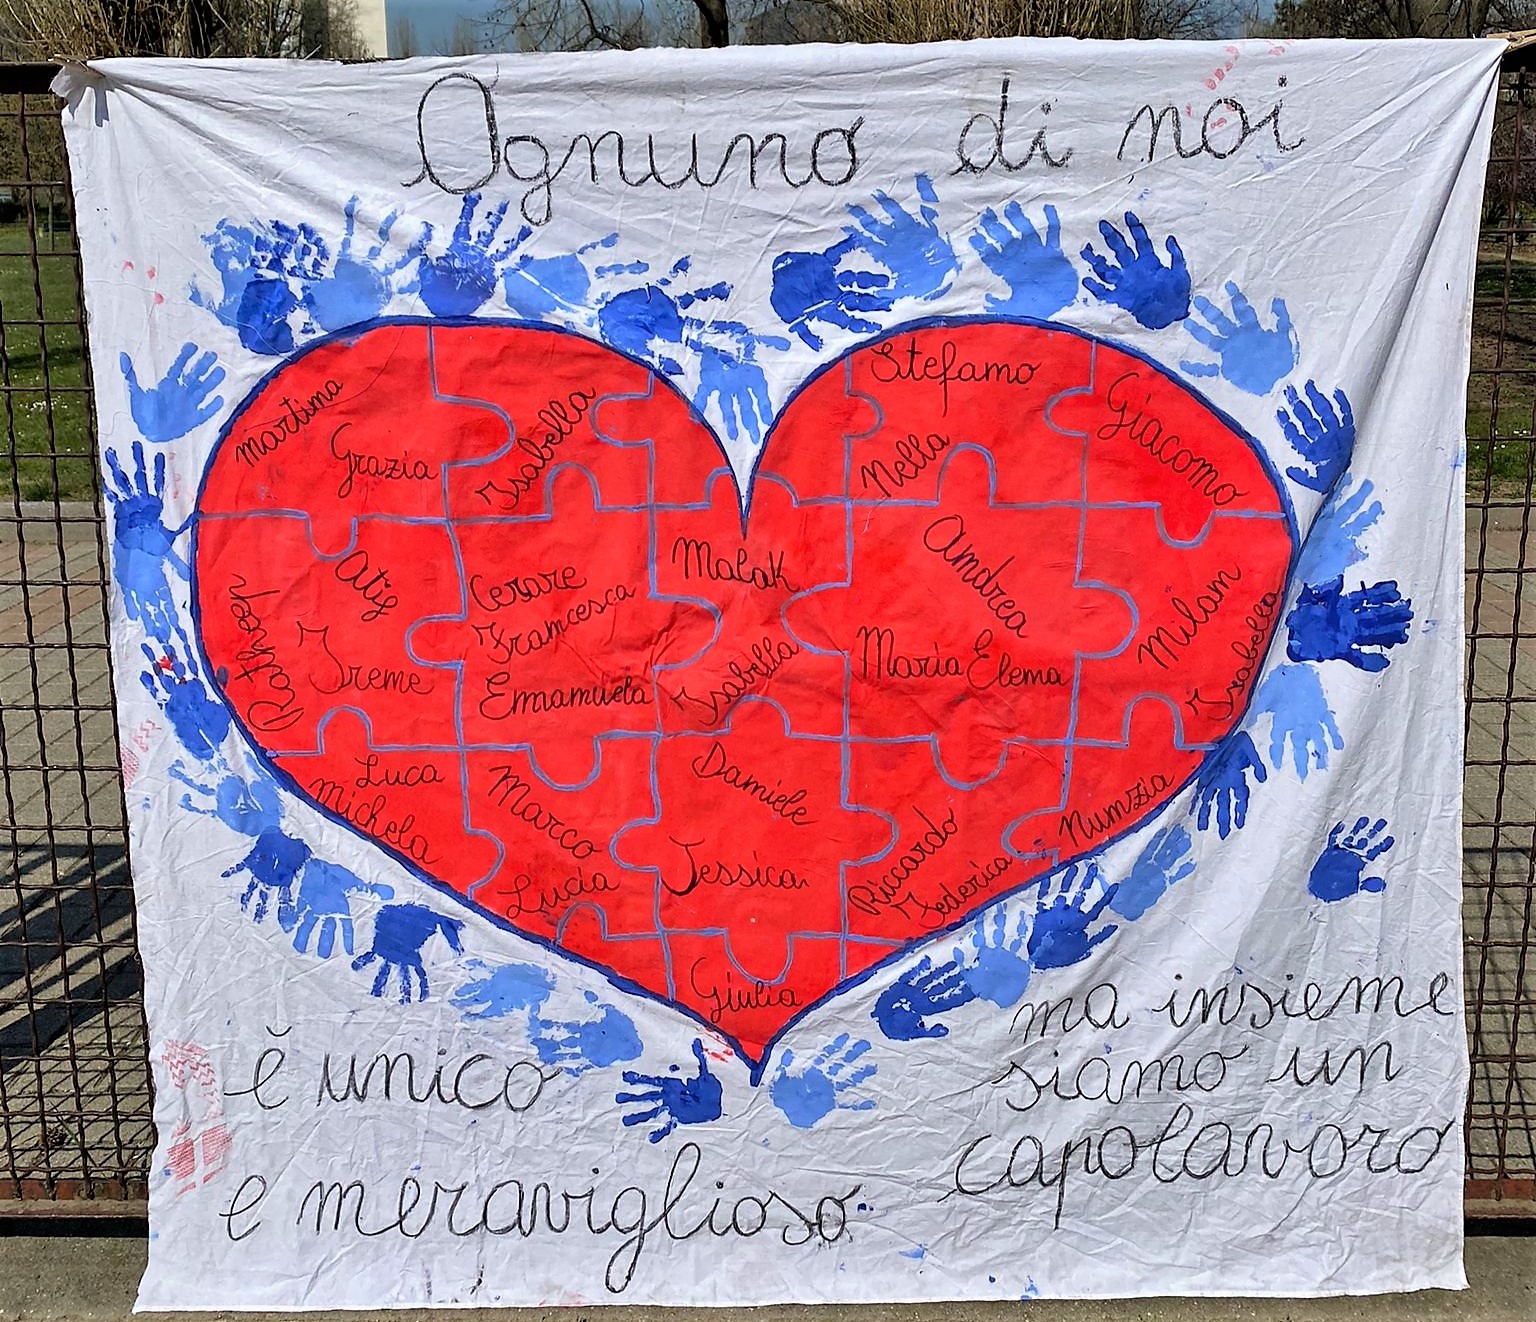 Ognuno di noi
Martina
Grazia
Isabella
Stefano
Nella
Giacomo
Katheep
Atig
Irene
Cerare
Francesca
Emanuela
Malak
Isabella
Andrea
Maria Elena
Milam
Isabella
Luca
Michela
Marco
Lucia
Daniele
Jessica
Riccardo
Federica
Nunzia
Giulia
è unico
e meraviglioso
ma insieme
siamo un
capolavoro